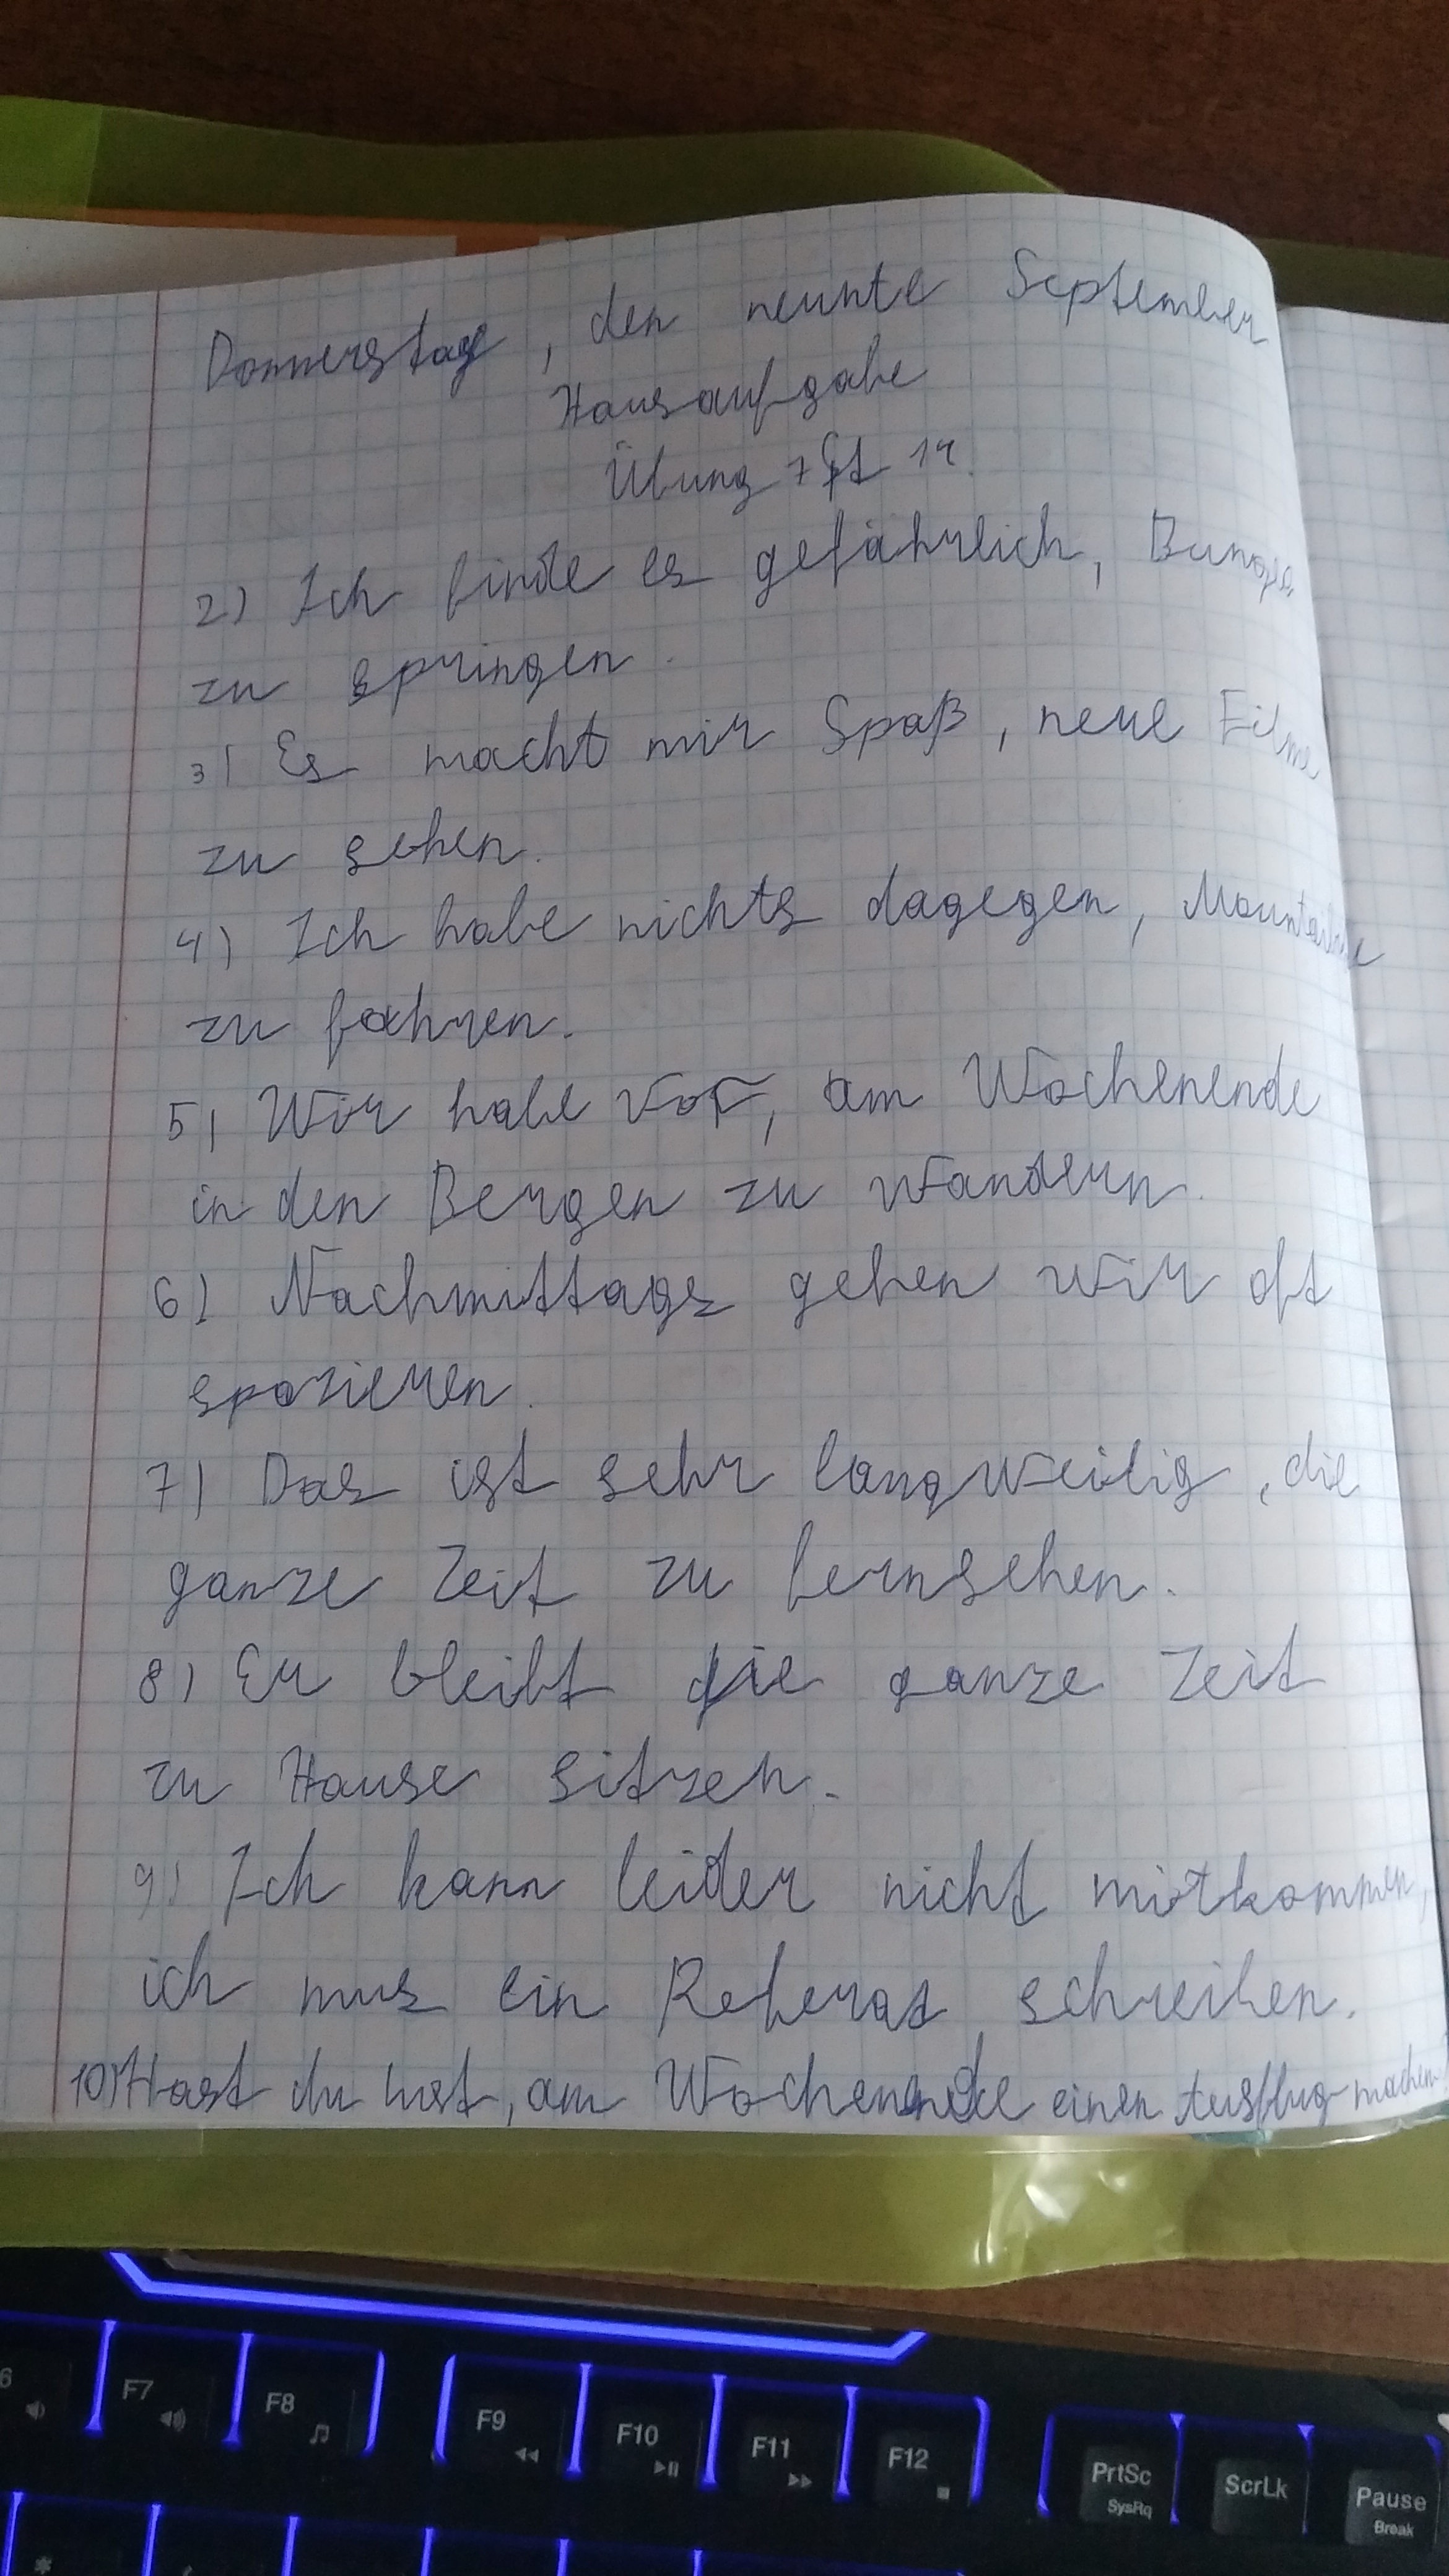 Donnerstag, den neunte September
Hausaufgabe
Übung 7 St 14.
2) Ich finde es gefährlich, Bungee
zu springen.
3) Es macht mir Spaß, neue Filme
zu sehen.
4) Ich habe nichts dagegen,
zu fahren.
5) Wir habe vor, am Wochenende
in den Bergen zu wandern.
6) Nachmittags gehen wir oft
spazieren.
7) Das ist sehr langweilig, die
ganze Zeit zu fernsehen.
8) Er bleibt die ganze Zeit
zu Hause sitzen.
9) Ich kann leider nicht mitkommen,
ich mus ein Referat schreiben.
10) Hast du lust, am Wochenende einen Ausflug machen
6
F7
F8
F9
F10
F11
F12
PrtSc
SysRq
ScrLk
Pause
Break
*